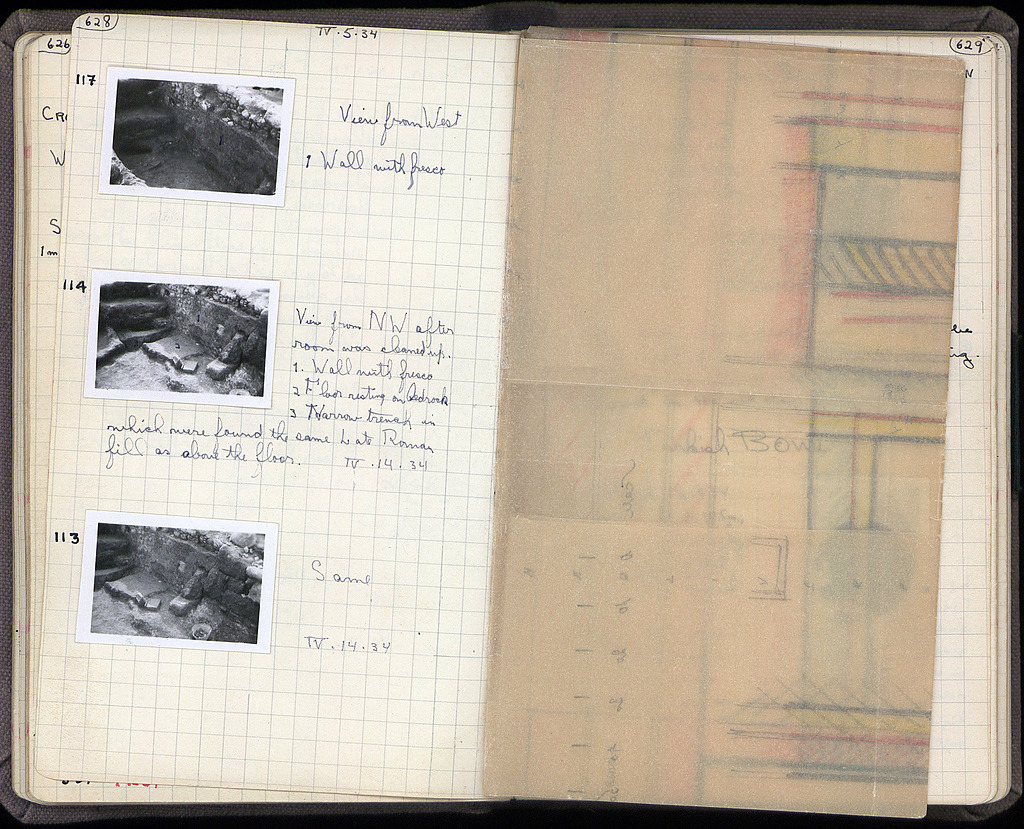 628
626
629
IV.5.34
117
View from West
1 Wall with fresco
114
View from NW after
room was cleaned up.
1. Wall with fresco
2 Floor resting on bedrock
3 Narrow trench in
which were found the same Late Roman
fill as above the floor. IV.14.34
113
Same
IV.14.34
Cr
W
S
1m
which